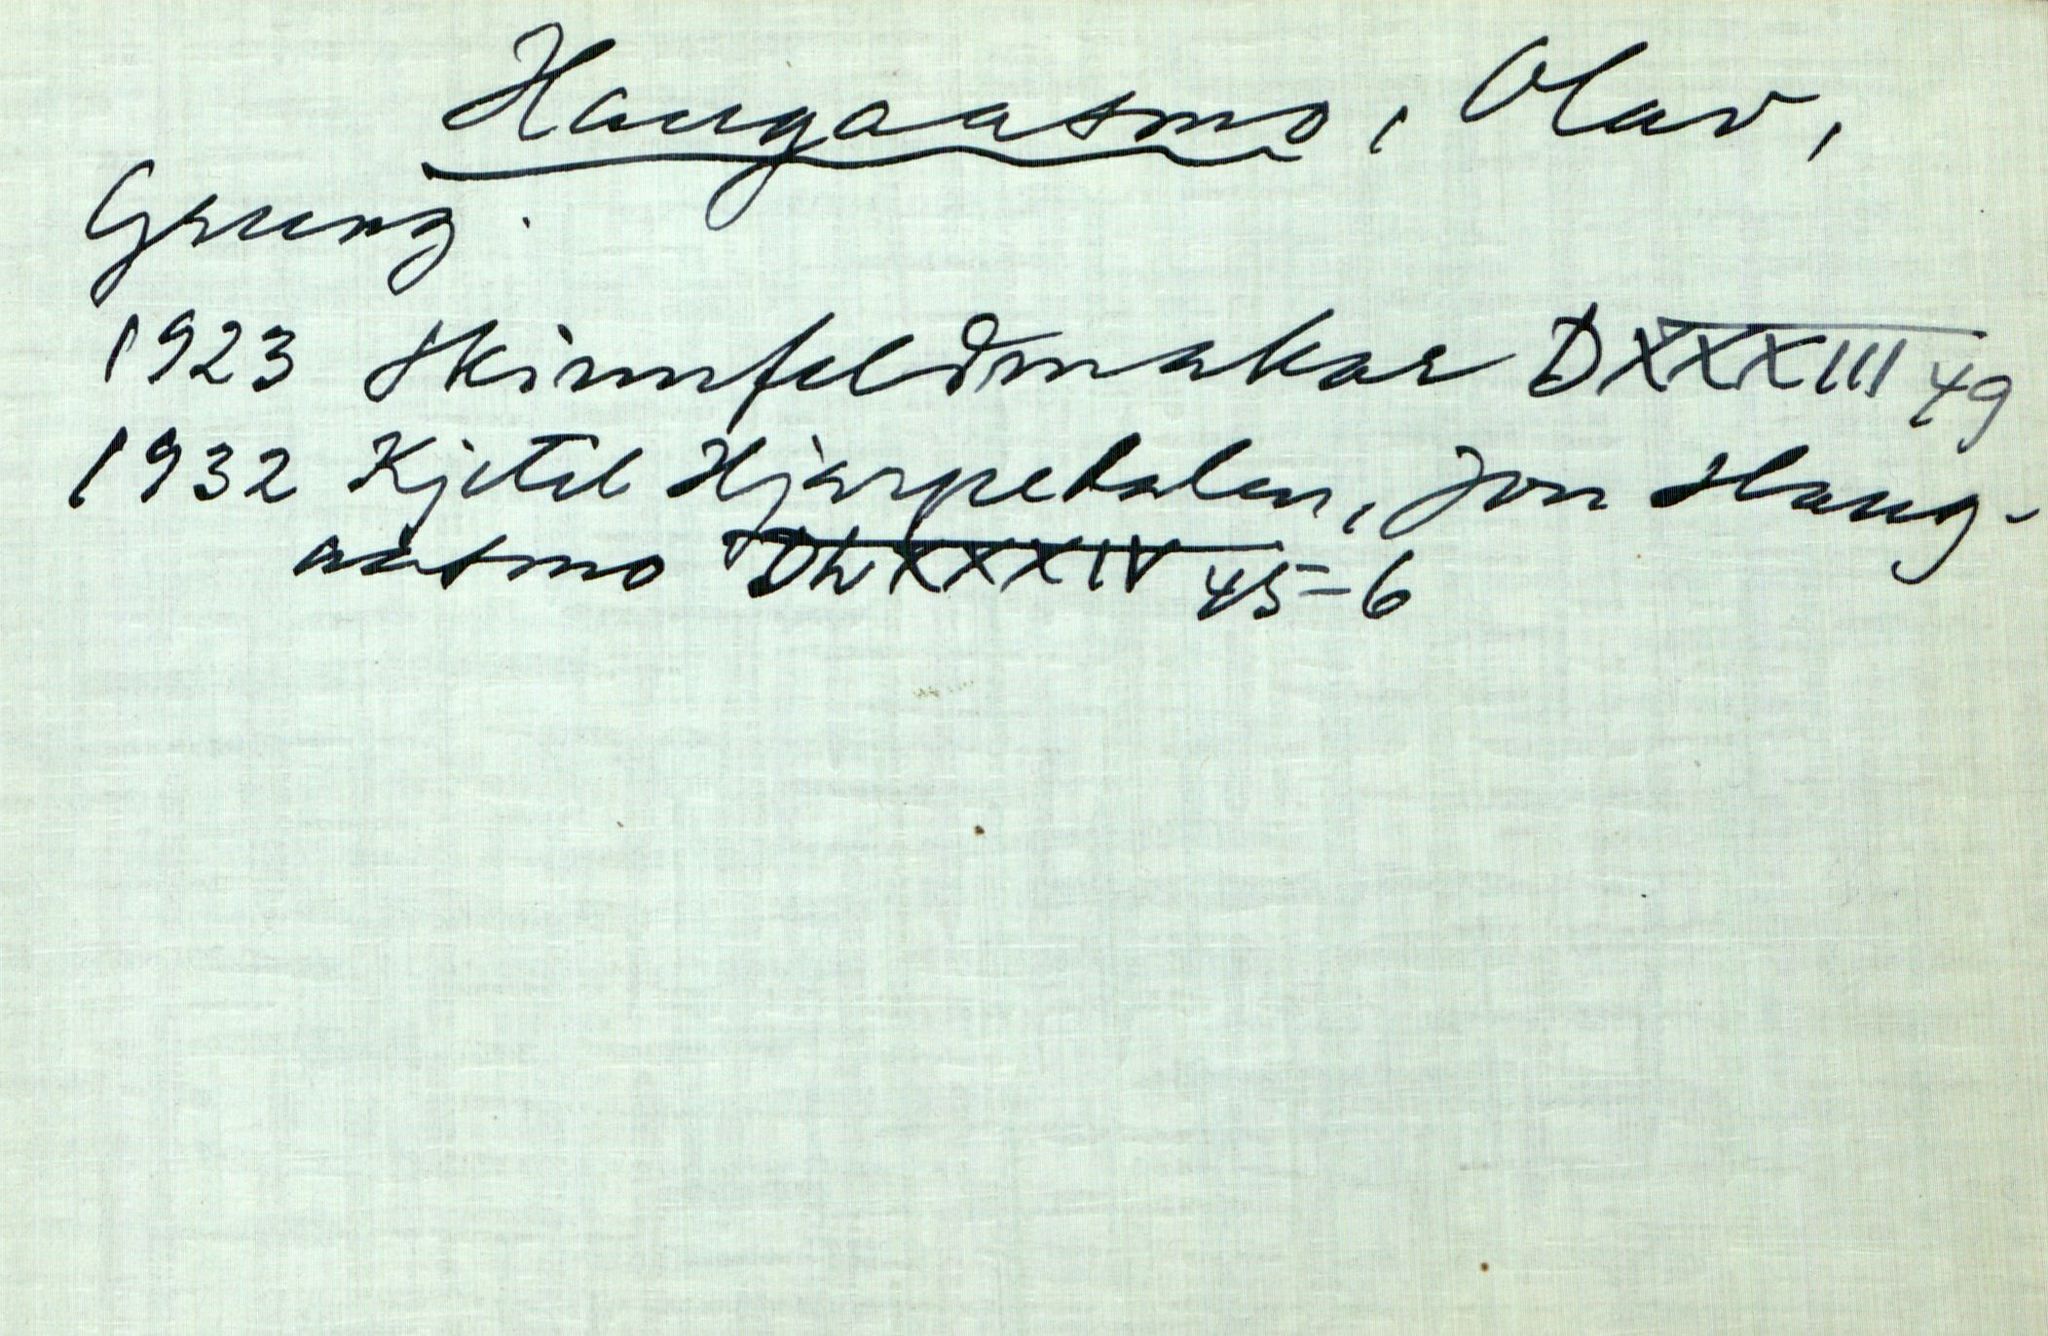 Haugaasmo, Olav,
Grung.
1923 Skinnfeldmakar D XXXIII 49
1932 Kjetil Hjarpedalen, Jon Haug-
aasmo XXXIV 45-6